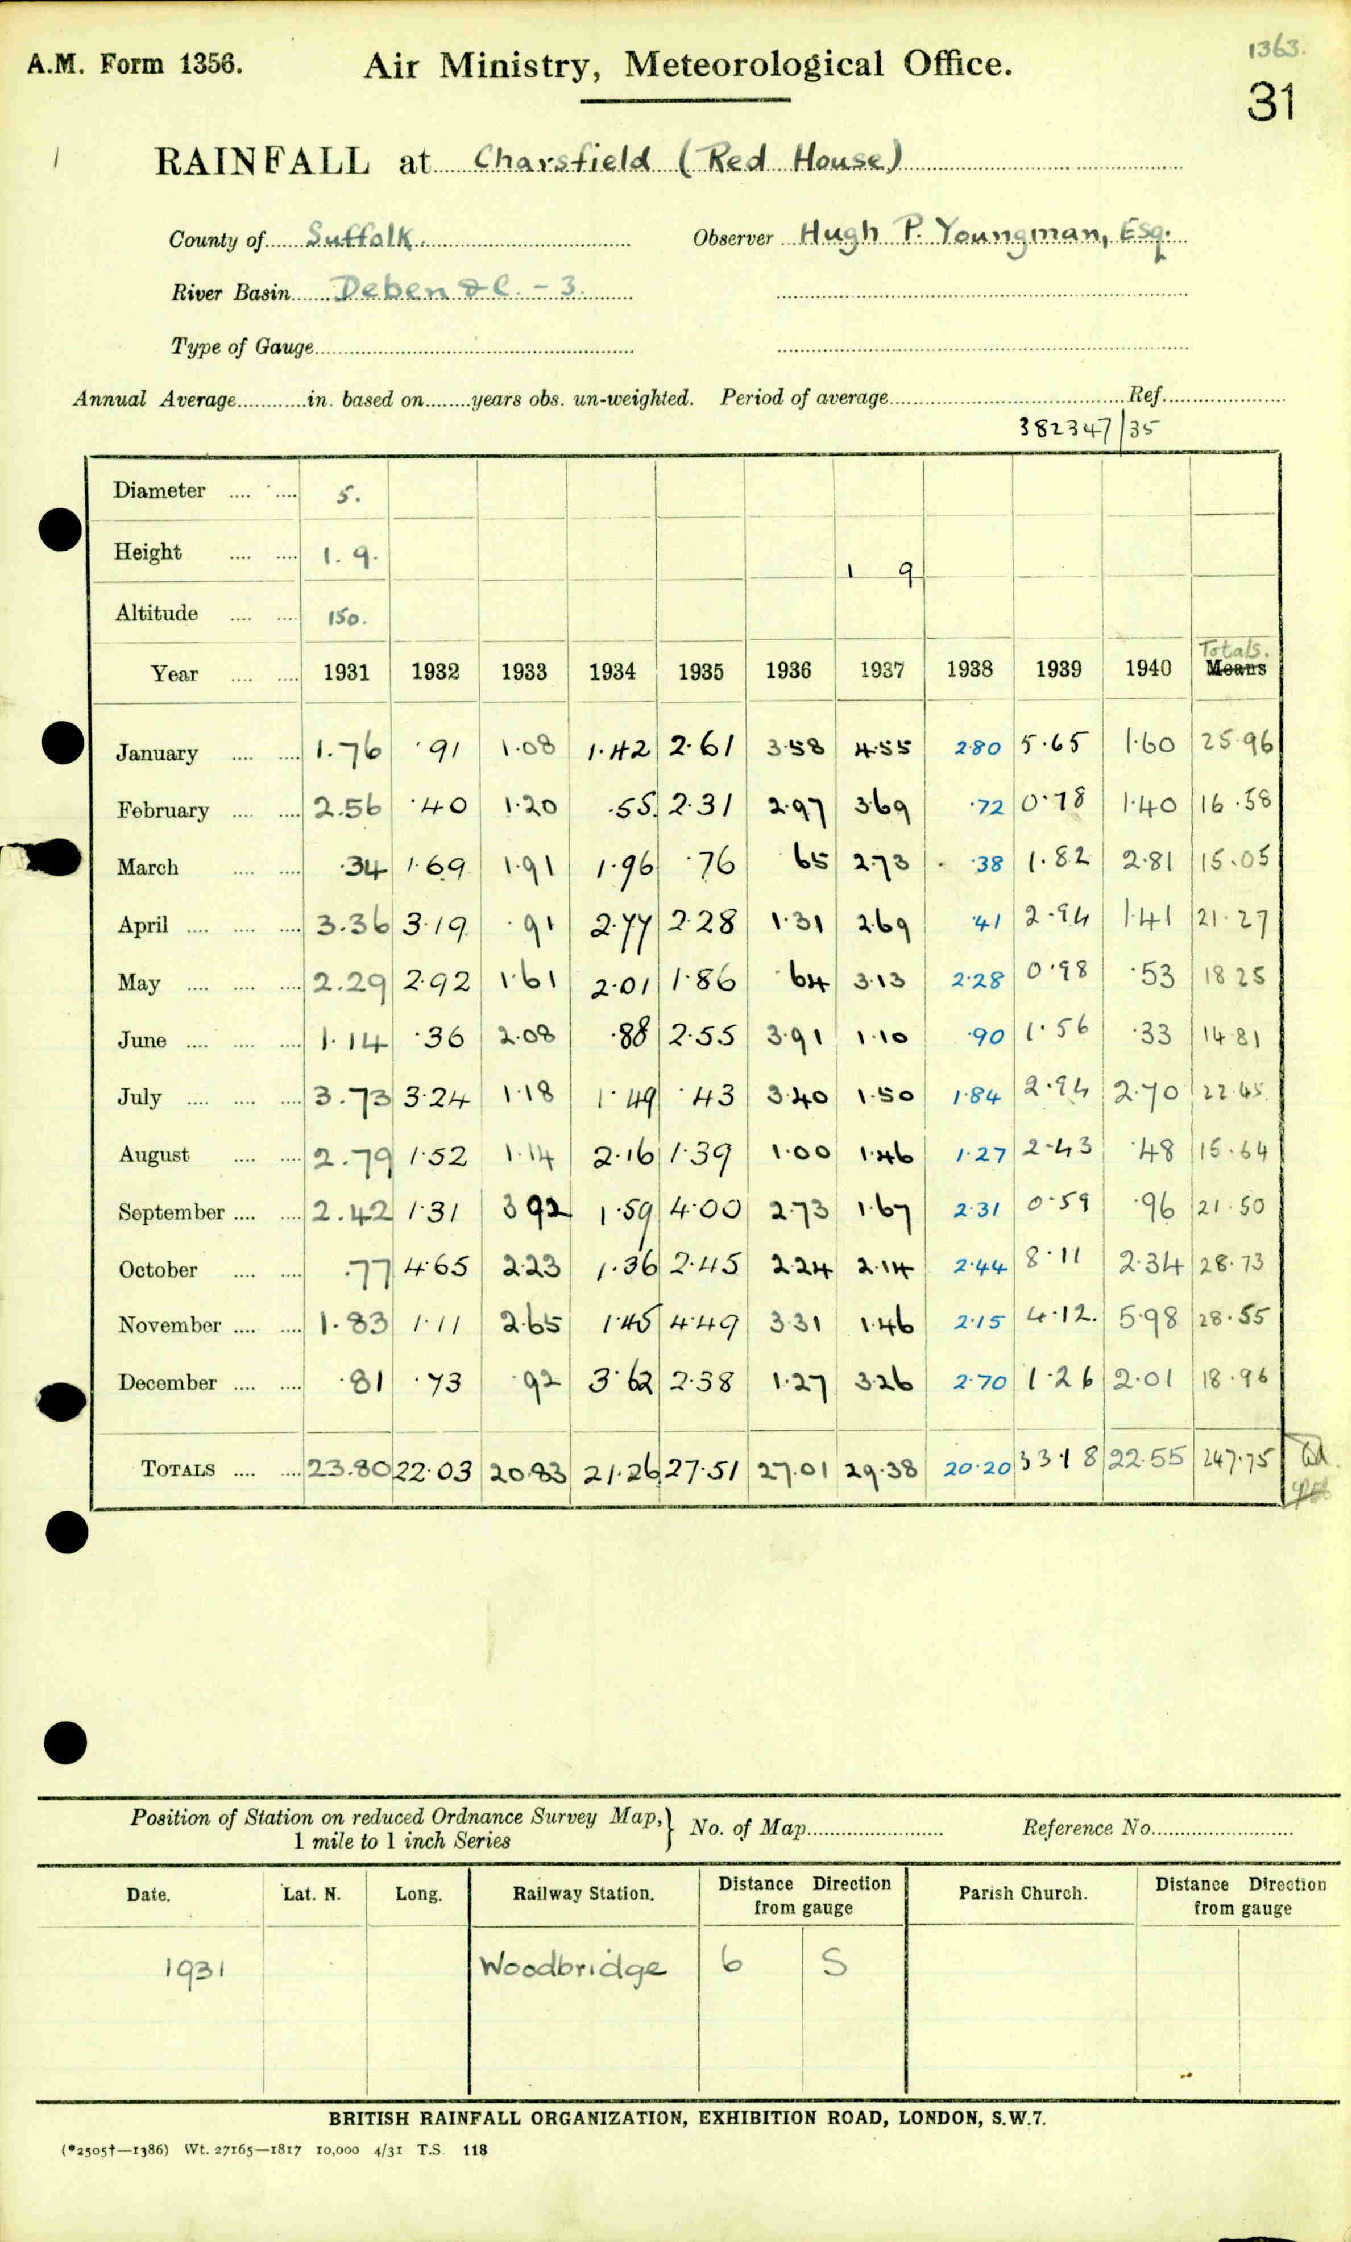 1363.
A.M. Form 1356. Air Ministry, Meteorological Office.
31
RAINFALL at Charsfield (Red House)
County of Suffolk. Observer Hugh P. Youngman, Esq.
River Basin Deben &c. - 3.
Type of Gauge
Annual Average in. based on years obs. un-weighted. Period of average Ref.
382347/35
Diameter 5.
Height 1. 9. 1 9
Altitude 150.
Totals.
Year 1931 1932 1933 1934 1935 1936 1937 1938 1939 1940 Means
January 1.76 .91 1.08 1.42 2.61 3.58 4.55 2.80 5.65 1.60 25.96
February 2.56 .40 1.20 .55 2.31 2.97 3.69 .72 0.78 1.40 16.58
March .34 1.69 1.91 1.96 .76 65 2.73 .38 1.82 2.81 15.05
April 3.36 3.19 .91 2.77 2.28 1.31 2.69 .41 2.94 1.41 21.27
May 2.29 2.92 1.61 2.01 1.86 .64 3.13 2.28 0.98 .53 18 25
June 1.14 .36 2.08 .88 2.55 3.91 1.10 .90 1.56 .33 14 81
July 3.73 3.24 1.18 1.49 .43 3.40 1.50 1.84 2.94 2.70 22.45
August 2.79 1.52 1.14 2.16 1.39 1.00 1.46 1.27 2.43 .48 15.64
September 2.42 1.31 3 92 1.59 4.00 2.73 1.67 2.31 0.59 .96 21.50
October .77 4.65 2.23 1.36 2.45 2.24 2.14 2.44 8.11 2.34 28.73
November 1.83 1.11 2.65 1.45 4.49 3.31 1.46 2.15 4.12. 5.98 28.55
December .81 .73 .92 3.62 2.38 1.27 3.26 2.70 1.26 2.01 18.96
TOTALS 23.80 22.03 20.83 21.26 27.51 27.01 29.38 20.20 33.18 22.55 247.75
Position of Station on reduced Ordnance Survey Map,} No. of Map Reference No.
1 mile to 1 inch Series
Date. Lat. N. Long. Railway Station. Distance Direction from gauge Parish Church. Distance Direction from gauge
1931 Woodbridge 6 S
BRITISH RAINFALL ORGANIZATION, EXHIBITION ROAD, LONDON, S.W.7.
(*2505†—1386) Wt. 27165—1817 10,000 4/31 T.S. 118